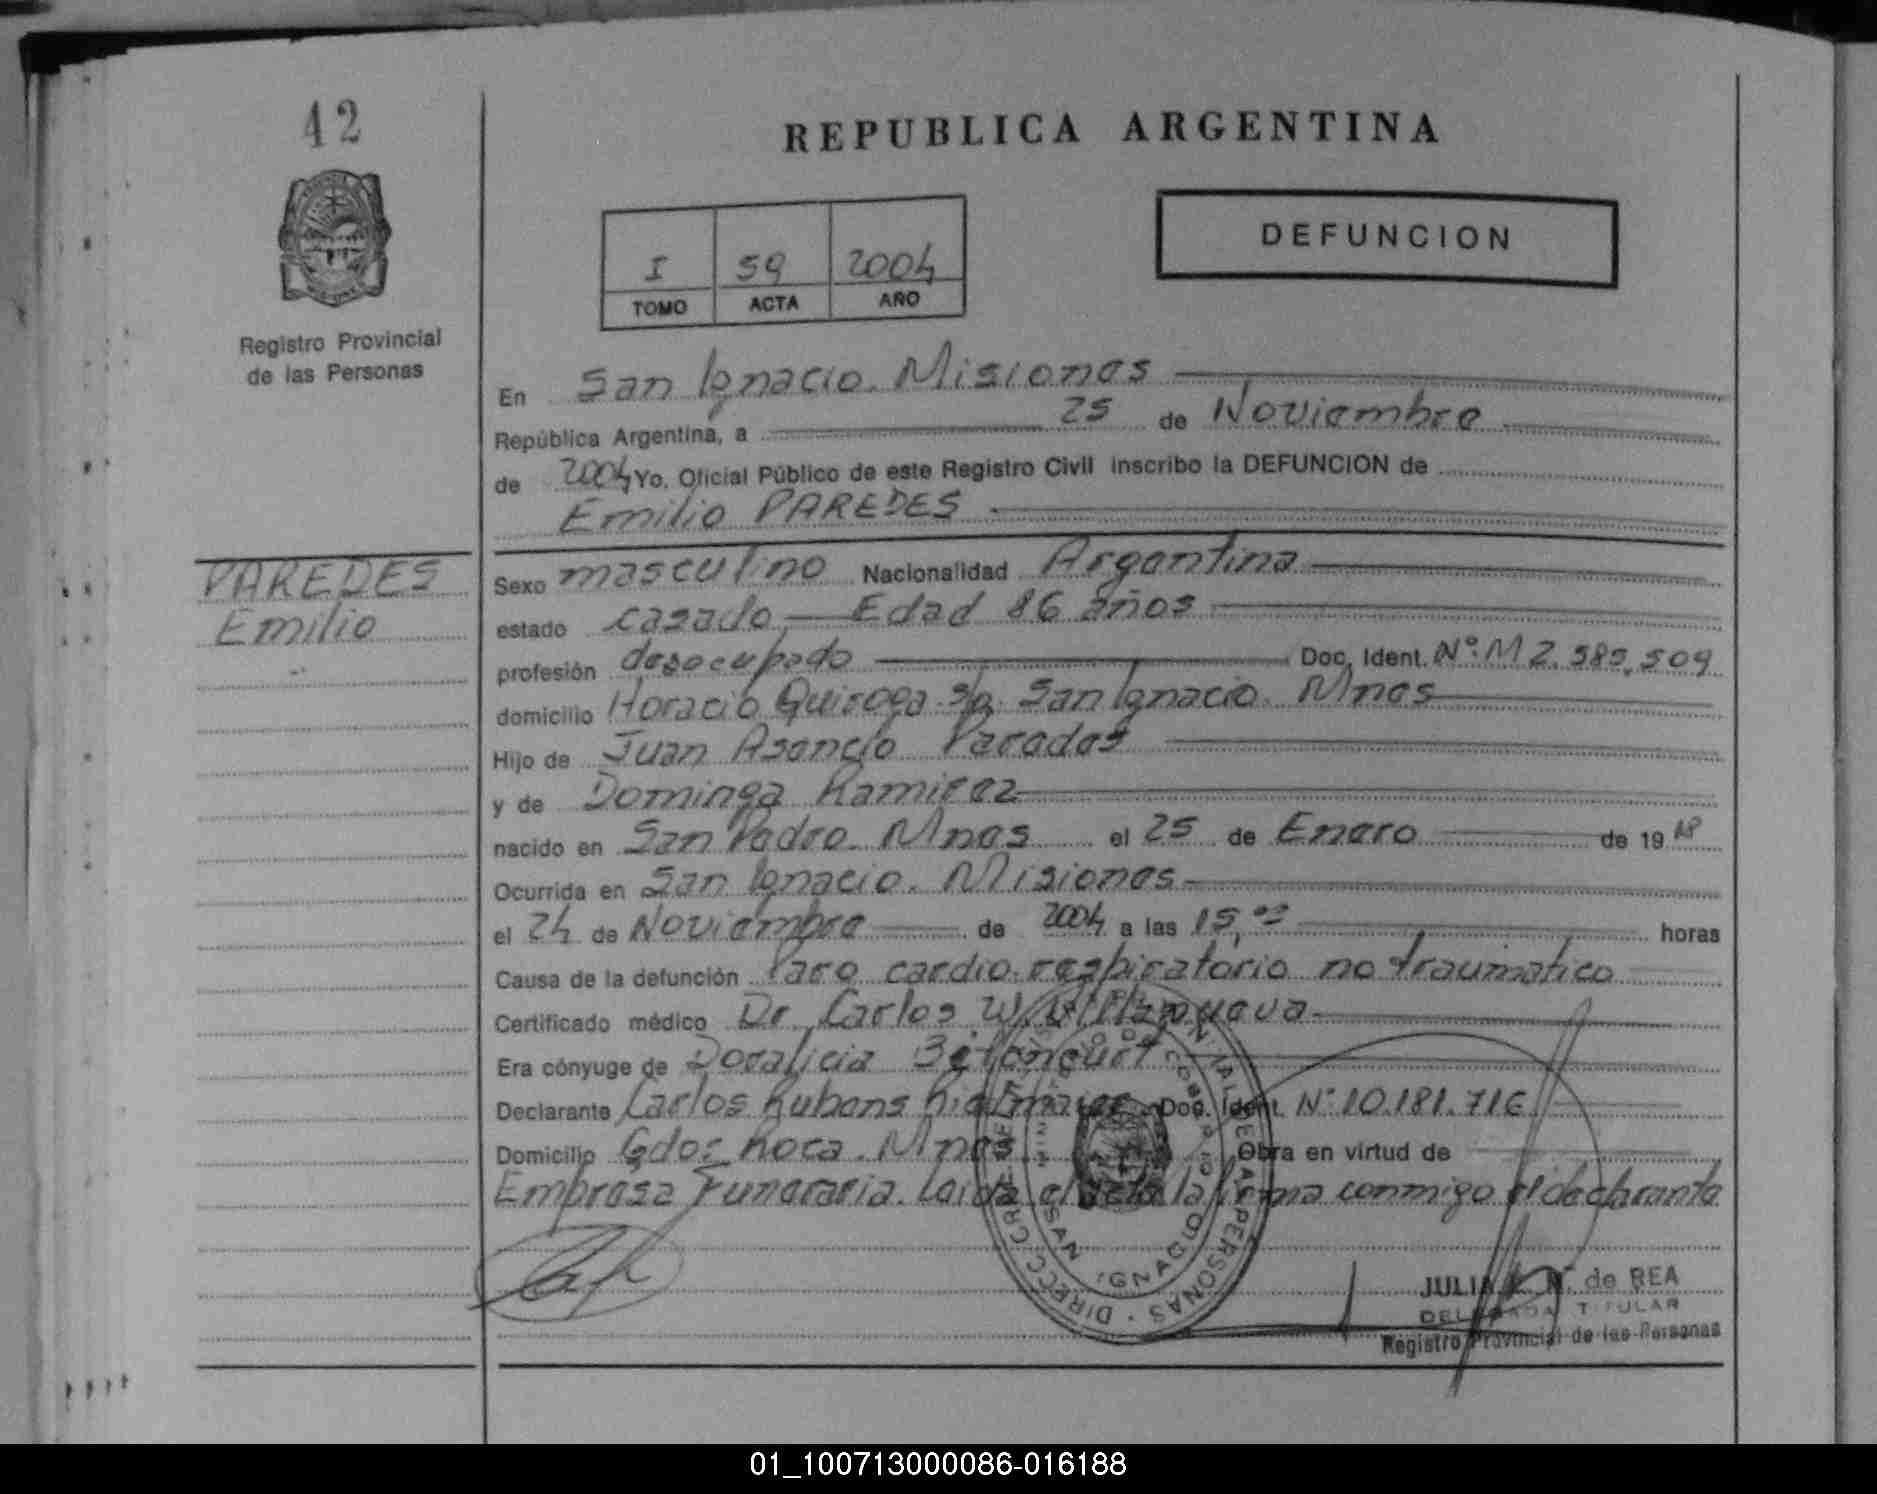 42
REPUBLICA ARGENTINA
DEFUNCION
I 59 2004
TOMO ACTA AÑO
Registro Provincial
de las Personas
En San Ignacio. Misiones
República Argentina, a 25 de Noviembre
de 2004 Yo, Oficial Público de este Registro Civil inscribo la DEFUNCION de
Emilio PAREDES
PAREDES
Emilio
Sexo masculino Nacionalidad Argentina
estado casado Edad 86 años
profesión desocupado Doc. Ident. Nº: M 2.585.509
domicilio Horacio Quiroga s/n. San Ignacio. Mnes
Hijo de Juan Asencio Paredes
y de Dominga Ramirez
nacido en San Pedro. Mnes el 25 de Enero de 1918
Ocurrida en San Ignacio. Misiones
el 24 de Noviembre de 2004 a las 15,00 horas
Causa de la defunción Paro cardio respiratorio no traumatico
Certificado médico Dr. Carlos W. Villanueva
Era cónyuge de Doralicia Bitancurt
Declarante Carlos Rubens Doc. Ident. Nº 10.181.716
Domicilio Gdor Roca. Mnes Obra en virtud de
Empresa Funeraria. Leida el acta la firma conmigo el declarante
SAN IGNACIO
JULIA de REA
DELEGADA TITULAR
Registro Provincial de las Personas
01_100713000086-016188